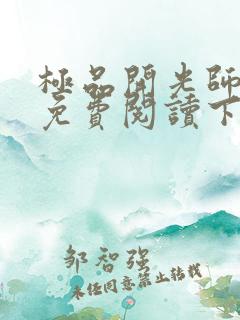 極品開光師
免費閱讀下
邹智强
未经同意禁止转载